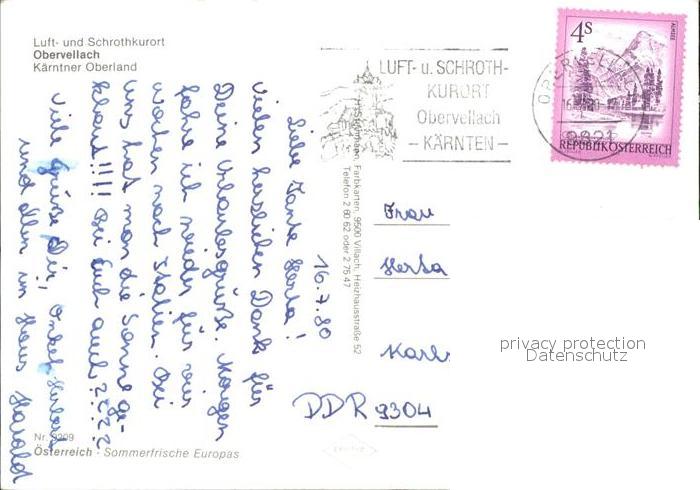 Luft- und Schrothkurort
Obervellach
Kärntner Oberland
LUFT- u. SCHROTH-
KURORT
Obervellach
- KÄRNTEN -
4S
ALMSEE
REPUBLIK ÖSTERREICH
OBERVELLACH
9821
16.7.80
Liebe Tante Herta!
vielen herzlichen Dank für
Deine Urlaubsgrüße. Morgen
fahre ich wieder für zwei
Wochen nach Italien. Bei
uns hat man die Sonne ge-
klaut!!!! Bei Euch auch????
Viele Grüße Dir, Onkel Herbert
und allen im Haus Harald
Farbkarten, 9500 Villach, Heizhausstraße 52
Telefon 2 60 62 oder 2 75 47
Frau
Herta
Karl-
DDR 9304
privacy protection
Datenschutz
Nr. 9209
Österreich - Sommerfrische Europas